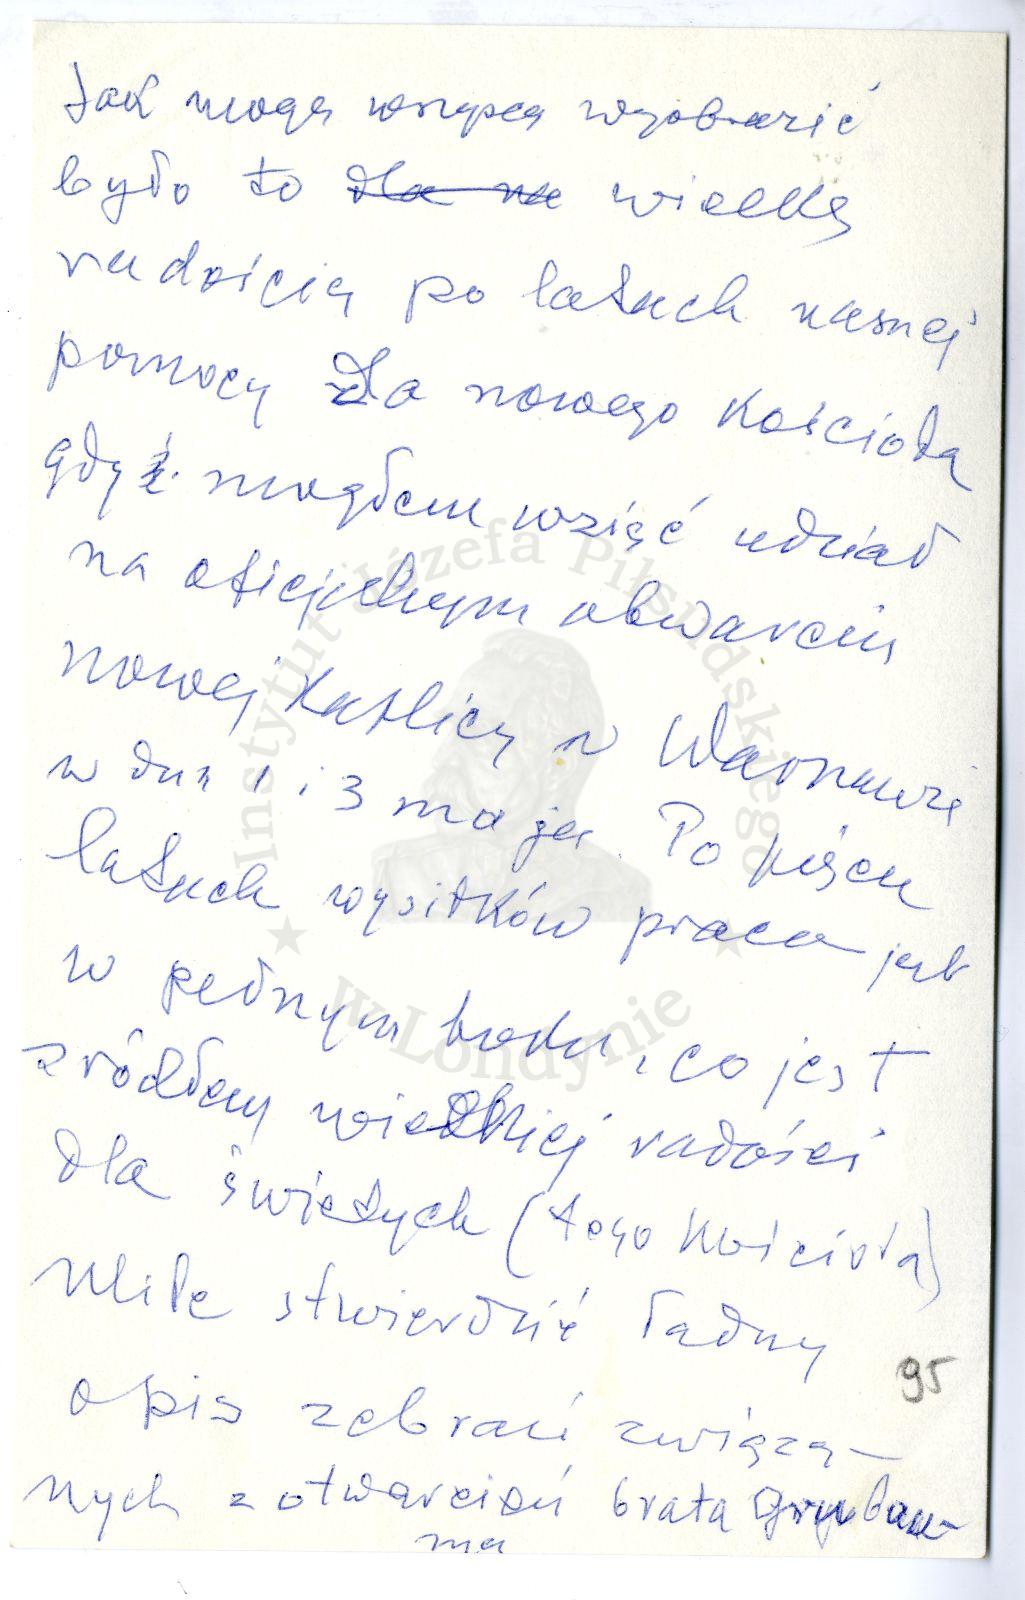 Jak mogą wszyscy wyobrazić
było to dla na wielką
radością po latach naszej
pomocy dla nowego Kościoła
gdyż mogłem wziąć udział
na oficjalnym otwarciu
nowej Kaplicy w Warszawie
w dn 1 i 3 maja. Po pięciu
latach wysiłków praca jest
w pełnym toku, co jest
źródłem wielkiej radości
dla świętych (tego Kościoła)
Miłe stwierdzić ładny
opis zebrań związa-
nych z otwarciem brata
ma
95
Instytut Józefa Piłsudskiego
w Londynie